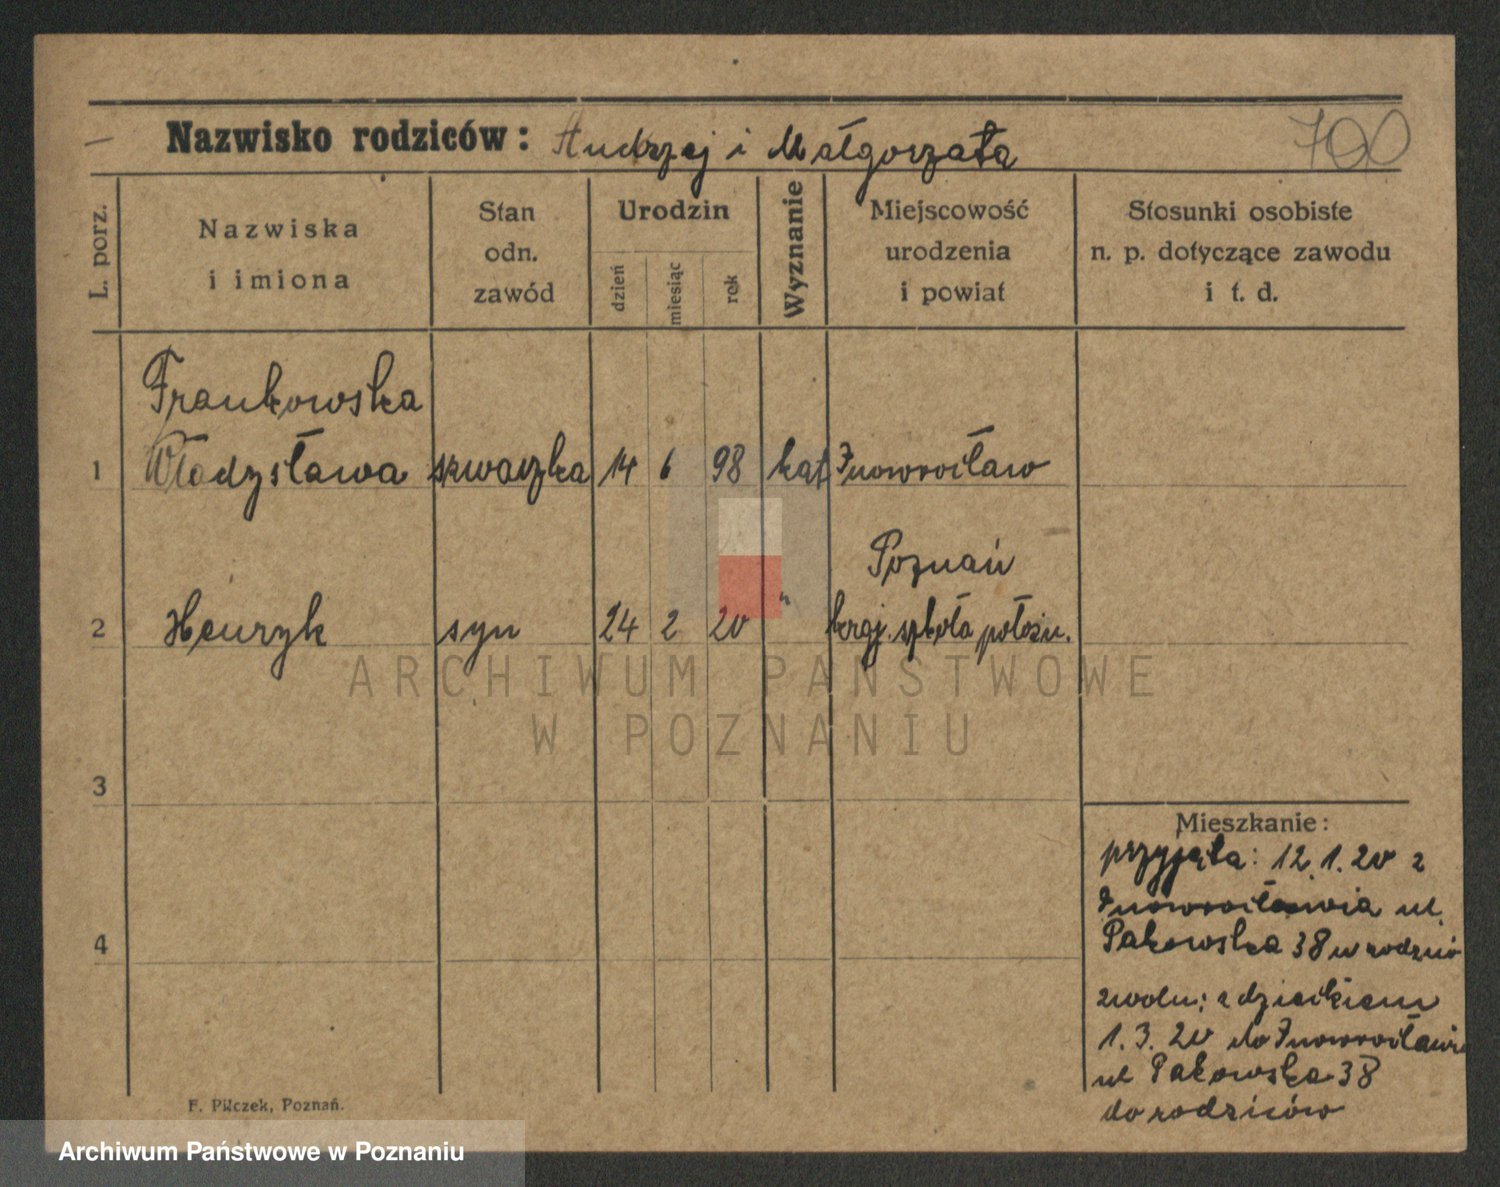 Nazwisko rodziców: Andrzej i Małgorzata
700
L. porz.
Nazwiska
i imiona
Stan
odn.
zawód
Urodzin
dzień
miesiąc
rok
Wyznanie
Miejscowość
urodzenia
i powiat
Stosunki osobiste
n. p. dotyczące zawodu
i t. d.
Frankowska
1 Władysława szwaczka 14 6 98 kat Inowrocław
Poznań
2 Henryk syn 24 2 20 " kraj. szkoła położn.
ARCHIWUM PAŃSTWOWE
W POZNANIU
3
4
Mieszkanie:
przyjęta: 12.1.20 z
Inowrocławia ul.
Pakowska 38 u rodzicó
zwoln; z dzieckiem
1.3.20 do Inowrocławia
ul Pakowska 38
do rodziców
F. Pilczek, Poznań.
Archiwum Państwowe w Poznaniu